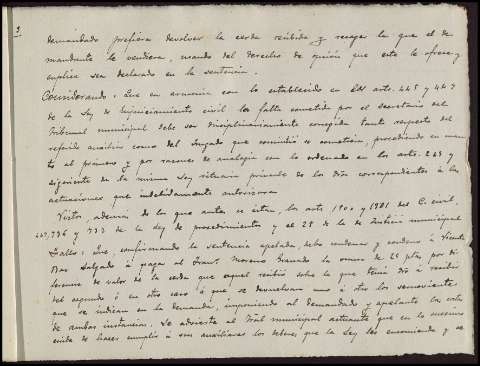 3
demandado prefiera devolver la cerda recibida y recoger la que el de
mandante le vendiera, usando del derecho de opción que este le ofrece y
suplica sea declarado en la sentencia.
Considerando: Que en armonia con lo establecido en los arts. 445 y 447
de la Ley de Enjuiciamiento civil la falta cometida por el secretario del
Tribunal municipal debe ser disciplinariamente corregida tanto respecto del
referido auxiliar como del Juzgado que consintió se cometiera, procediendo en cuan
to al primero y por razones de analogia con lo ordenado en los arts. 263 y
siguiente de la misma Ley rituaria privarle de los dros correspondientes á las
actuaciones que indebidamente autorizara
Vistos, además de los que antes se citan, los arts 1902 y 1981 del C. civil,
736 y 733 de la Ley de procedimientos y el 25 de la de Justicia municipal
Fallo: Que, confirmando la sentencia apelada, debo condenar y condeno á Vicente
Bas Salgado á pagar al Moreno Granado la suma de 25 ptas por di
ferencia de valor de la cerda que aquel recibió sobre la que tenia dió á recibir
del segundo ó en otro caso á que se devuelvan uno á otro los semovientes
que se indican en la demanda, imponiendo al demandado y apelante las costas
de ambas instancias. Se advierte al Tral municipal actuante que en lo sucesivo
cuide de hacer cumplir á sus auxiliares los deberes que la Ley les encomienda y se